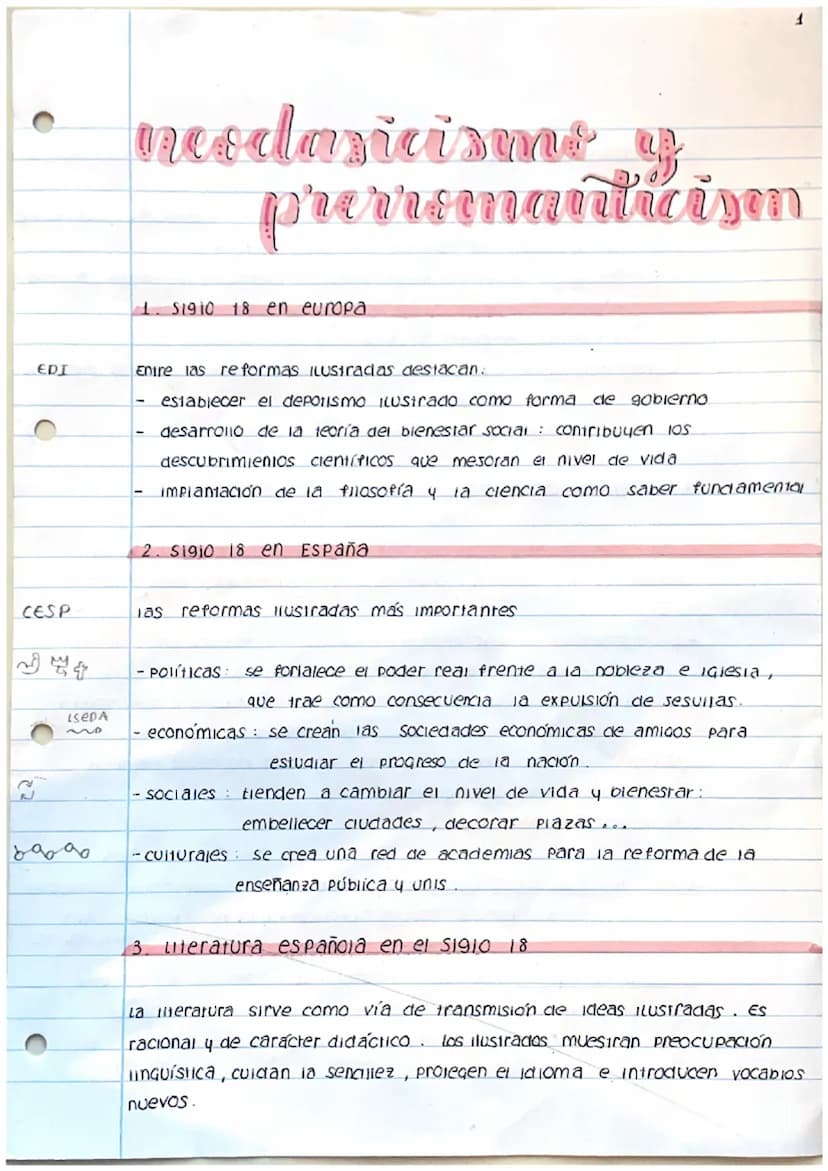 1
neoclasicismo y
prerromanticism
1. siglo 18 en europa
EDI
Entre las reformas ilustradas destacan:
- establecer el depotismo ilustrado como forma de gobierno
- desarrollo de la teoría del bienestar social : contribuyen los
descubrimientos científicos que mejoran el nivel de vida
- implantación de la filosofía y la ciencia como saber fundamental
2. siglo 18 en España
CESP
las reformas ilustradas más importantes
- políticas: se fortalece el poder real frente a la nobleza e iglesia,
que trae como consecuencia la expulsión de jesuitas.
ISEDA
- económicas : se crean las sociedades económicas de amigos para
estudiar el progreso de la nación.
- sociales : tienden a cambiar el nivel de vida y bienestar:
embellecer ciudades, decorar plazas...
- culturales : se crea una red de academias para la reforma de la
enseñanza pública y unis.
3. literatura española en el siglo 18
La literatura sirve como vía de transmisión de ideas ilustradas. Es
racional y de carácter didáctico. los ilustrados muestran preocupación
lingüística, cuidan la sencillez, protegen el idioma e introducen vocablos
nuevos.